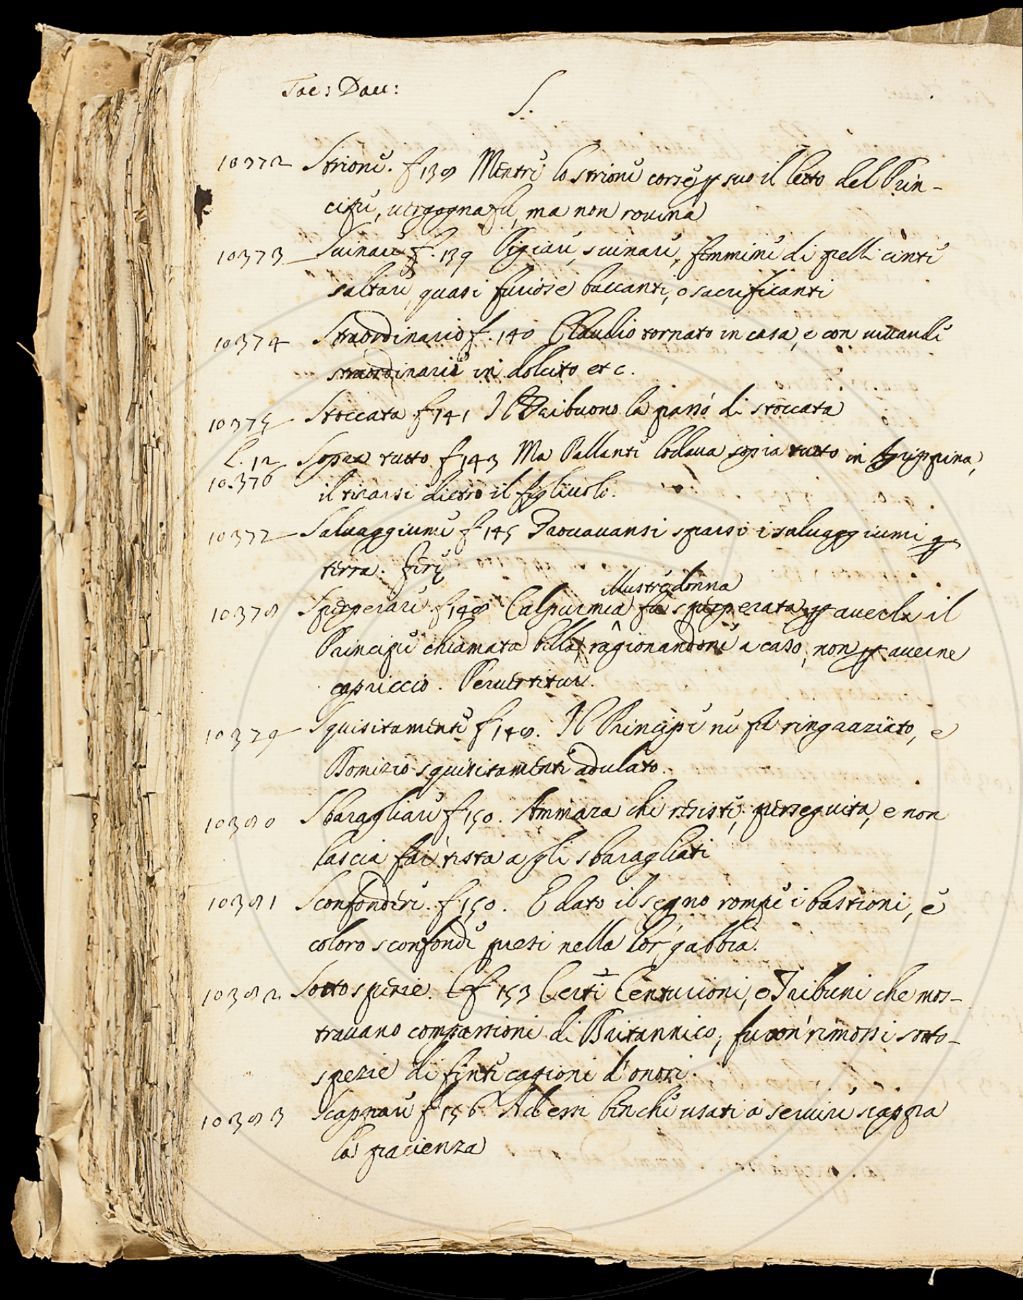 Tac: Dav:
S.
10372 Strione. f 138 Mentre lo strione corse p suo il letto del Prin-
cipe, vergognasse, ma non rovina
10373 Svinare f. 139 Pigiare, svinare, femmine di pelli cinte
saltare quasi furiose baccanti, o sacrificanti
10374 Straordinario f. 140 Claudio tornato in casa, e con vivande
straordinarie indolcito etc.
10375 Stoccata f 141 Il Tribuno la passò di stoccata
L. 12
10376 Sopra tutto f 143 Ma Pallante lodava sopra tutto in Agrippina,
il tirarsi dietro il figliuolo.
10377 Salvaggiume f 145 Trovavansi sparsi i salvaggiumi p
terra. fere
10378 Sperperare f 148 Calpurnia illustre donna fu sperperata p averla il
Principe chiamata bella, ragionandone a caso, non p averne
capriccio. Pervertitur.
10379 Squisitamente f 148. Il Principe ne fu ringraziato, e
Domizio squisitamente adulato.
10380 Sbaragliare f 150. Ammaza chi resiste, perseguita, e non
lascia far testa agli sbaragliati
10381 Sconfondere. f 150. E dato il segno rompe i bastioni, e
coloro sconfonde presi nella lor gabbia.
10382 Sotto spezie. f 153 Certi Centurioni, e Tribuni che mos-
travano compassione di Britannico, furon rimossi sotto-
spezie di finte cagioni d'onori.
10383 Scappare f 156 Ad essi benchè usati a servire scappa
la pacienza